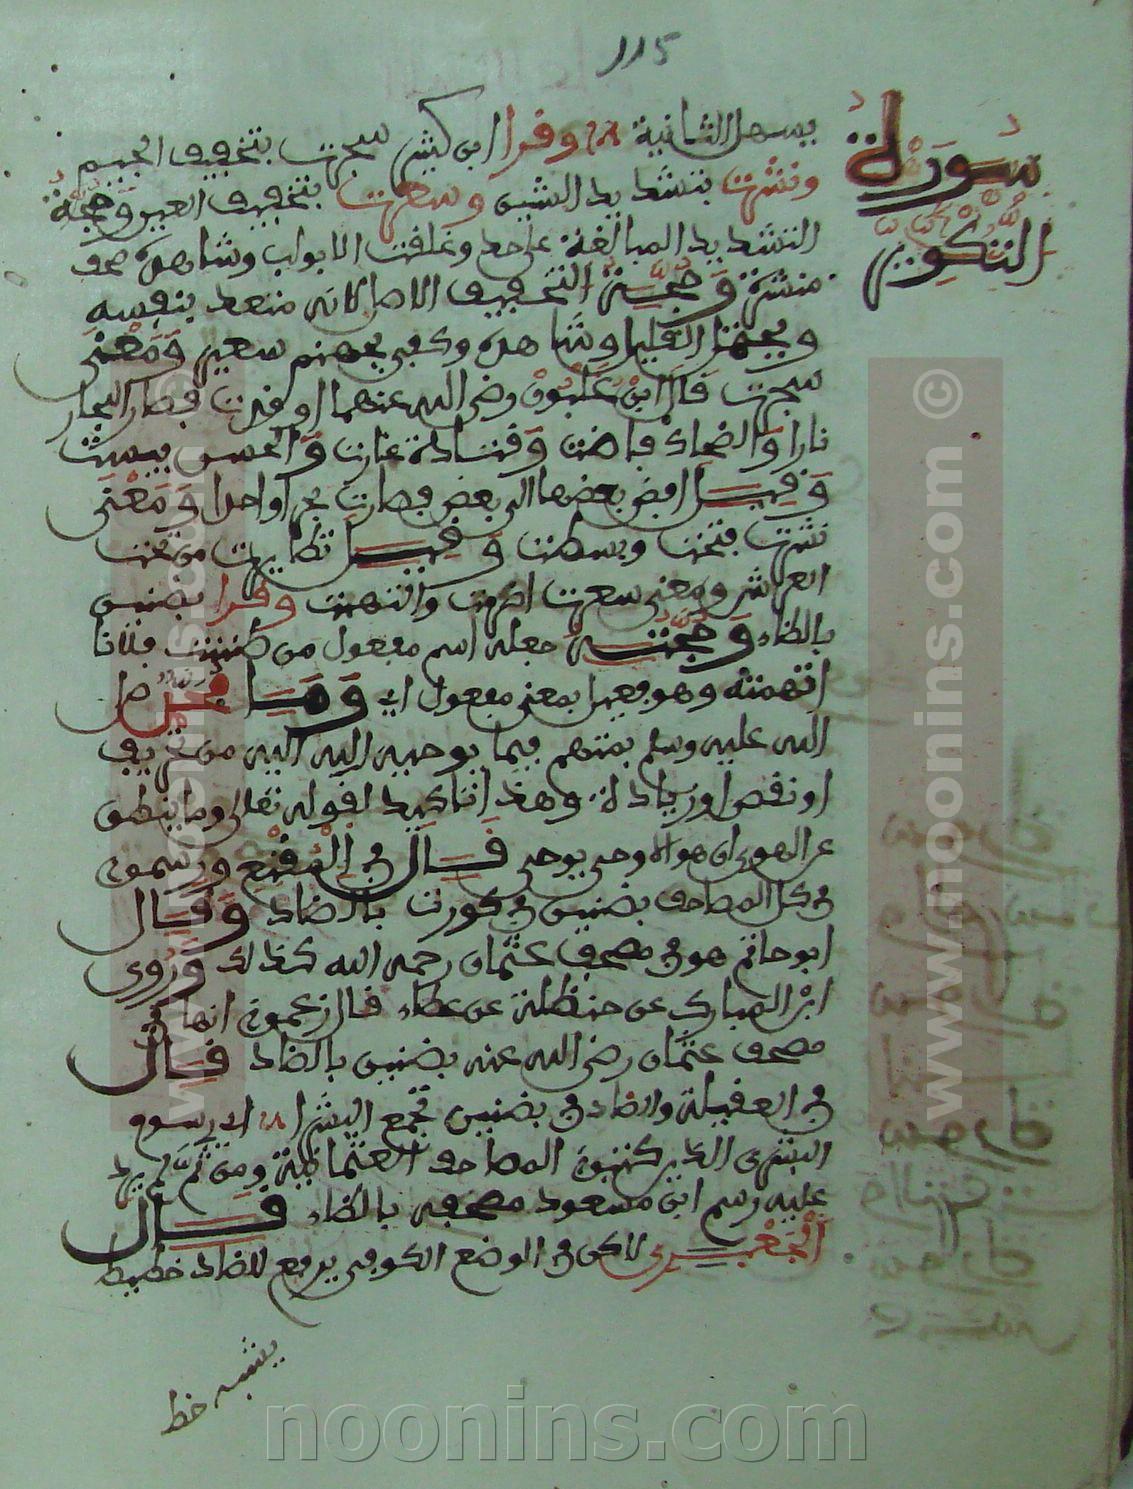 115
سورة
التكوير
يسهل الثانية وقرا ابن كثير سجرت بتخفيف الجيم
ونشرت بتشديد الشين وسعرت بتخفيف العين وحجة
التشديد المبالغة على حد وغلقت الابواب وشاهده صحف
منشرة وحجة التخفيف الاصل لانه متعد بنفسه
وشاهده وكفى بجهنم سعيرا ومعنى
سجرت قال ابن غلبون رضي الله عنهما اوقدت فصار البحار
نارا والضحاك فاضت وقتادة غارت والحسن يبست
وقيل افيض بعضها الى بعض فصارت بحرا واحدا ومعنى
نشرت فتحت وبسطت وقيل تطايرت من تحت
العرش ومعنى سعرت اضرمت والتهبت وقرا بضنين
بالظاء وحجته جعله اسم مفعول من ظننت فلانا
اتهمته وهو فعيل بمعنى مفعول اي وما صلى
الله عليه وسلم بمتهم فيما يوحيه الله اليه من تحريف
او نقص او زيادة وهذا تاكيد لقوله تعلى وما ينطق
عن الهوى ان هو الا وحي يوحى قال في المقنع ورسموه
في كل المصاحف بضنين في كورت بالضاد وقال
ابو حاتم هو في مصحف عثمان رحمه الله كذلك وروى
ابن المبارك عن حنظلة عن عطاء قال زعموا انها في
مصحف عثمان رضي الله عنه بضنين بالضاد قال
في العقيلة والضاد في بضنين تجمع البشرا اي رسوم
البشر الذين كتبوا المصاحف العثمانية ومن ثم لم يرد
عليه رسم ابن مسعود مصحفه بالظاء قال
الجعبري لاكن في الوضع الكوفي يرفع للضاد خطيط
يشبه خط
www.noonins.com ©
www.noonins.com ©
noonins.com